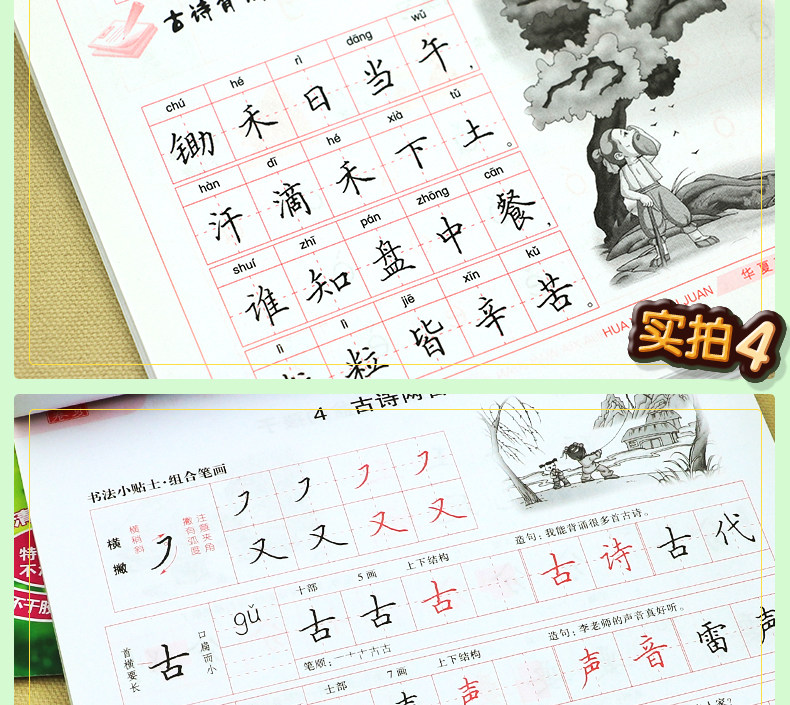 古诗背
chú hé rì dāng wǔ
锄禾日当午，
hàn dī hé xià tǔ
汗滴禾下土。
shuí zhī pán zhōng cān
谁知盘中餐，
lì lì jiē xīn kǔ
粒皆辛苦。
华夏
HUA
JUAN
实拍4
4 古诗两首
书法小贴士·组合笔画
横撇
横稍斜
撇有弧度
注意夹角
又又又又
造句：我能背诵很多首古诗。
十部 5画 上下结构
gǔ
古古古
古诗古代
首横要长
古
口扁而小
笔顺：一十十古古
造句：李老师的声音真好听。
士部 7画 上下结构
声声
声音雷声
人家？
特
不
不干胶